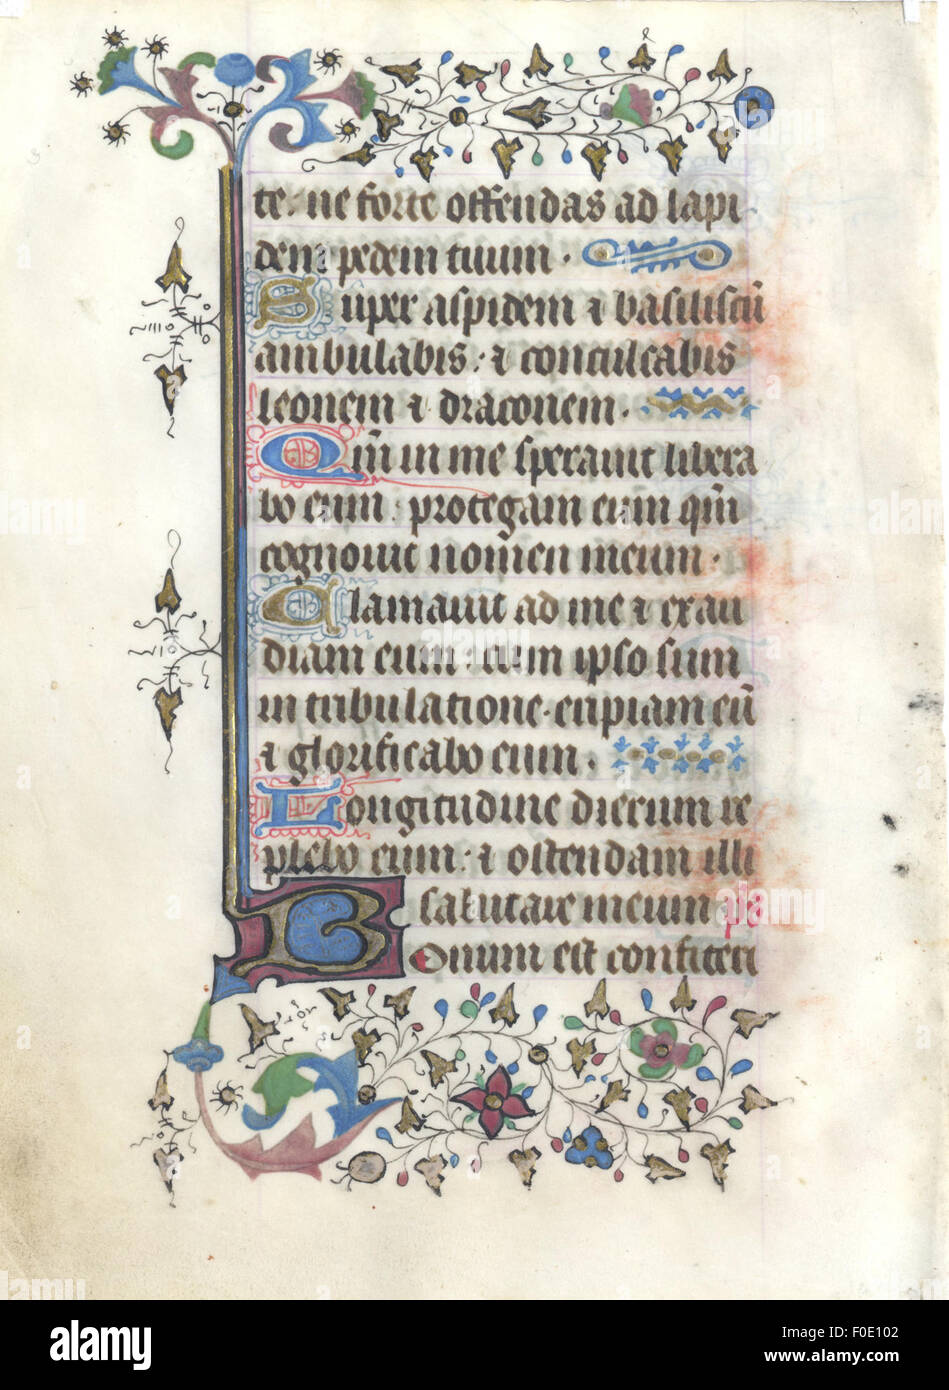 te · ne forte offendas ad lapi
dem pedem tuum ·
Super aspidem & basiliscū
ambulabis : & conculcabis
leonem & draconem ·
Qm̄ in me speravit libera
bo eum : protegam eum qm̄
cognovit nomen meum ·
Clamavit ad me & exau
diam eum : cum ipso sum
in tribulatione · eripiam eū
& glorificabo eum ·
Longitudine dierum re
plebo eum : & ostendam illi
salutare meum ps
Bonum est confiteri
alamy
Image ID: F0E102
www.alamy.com